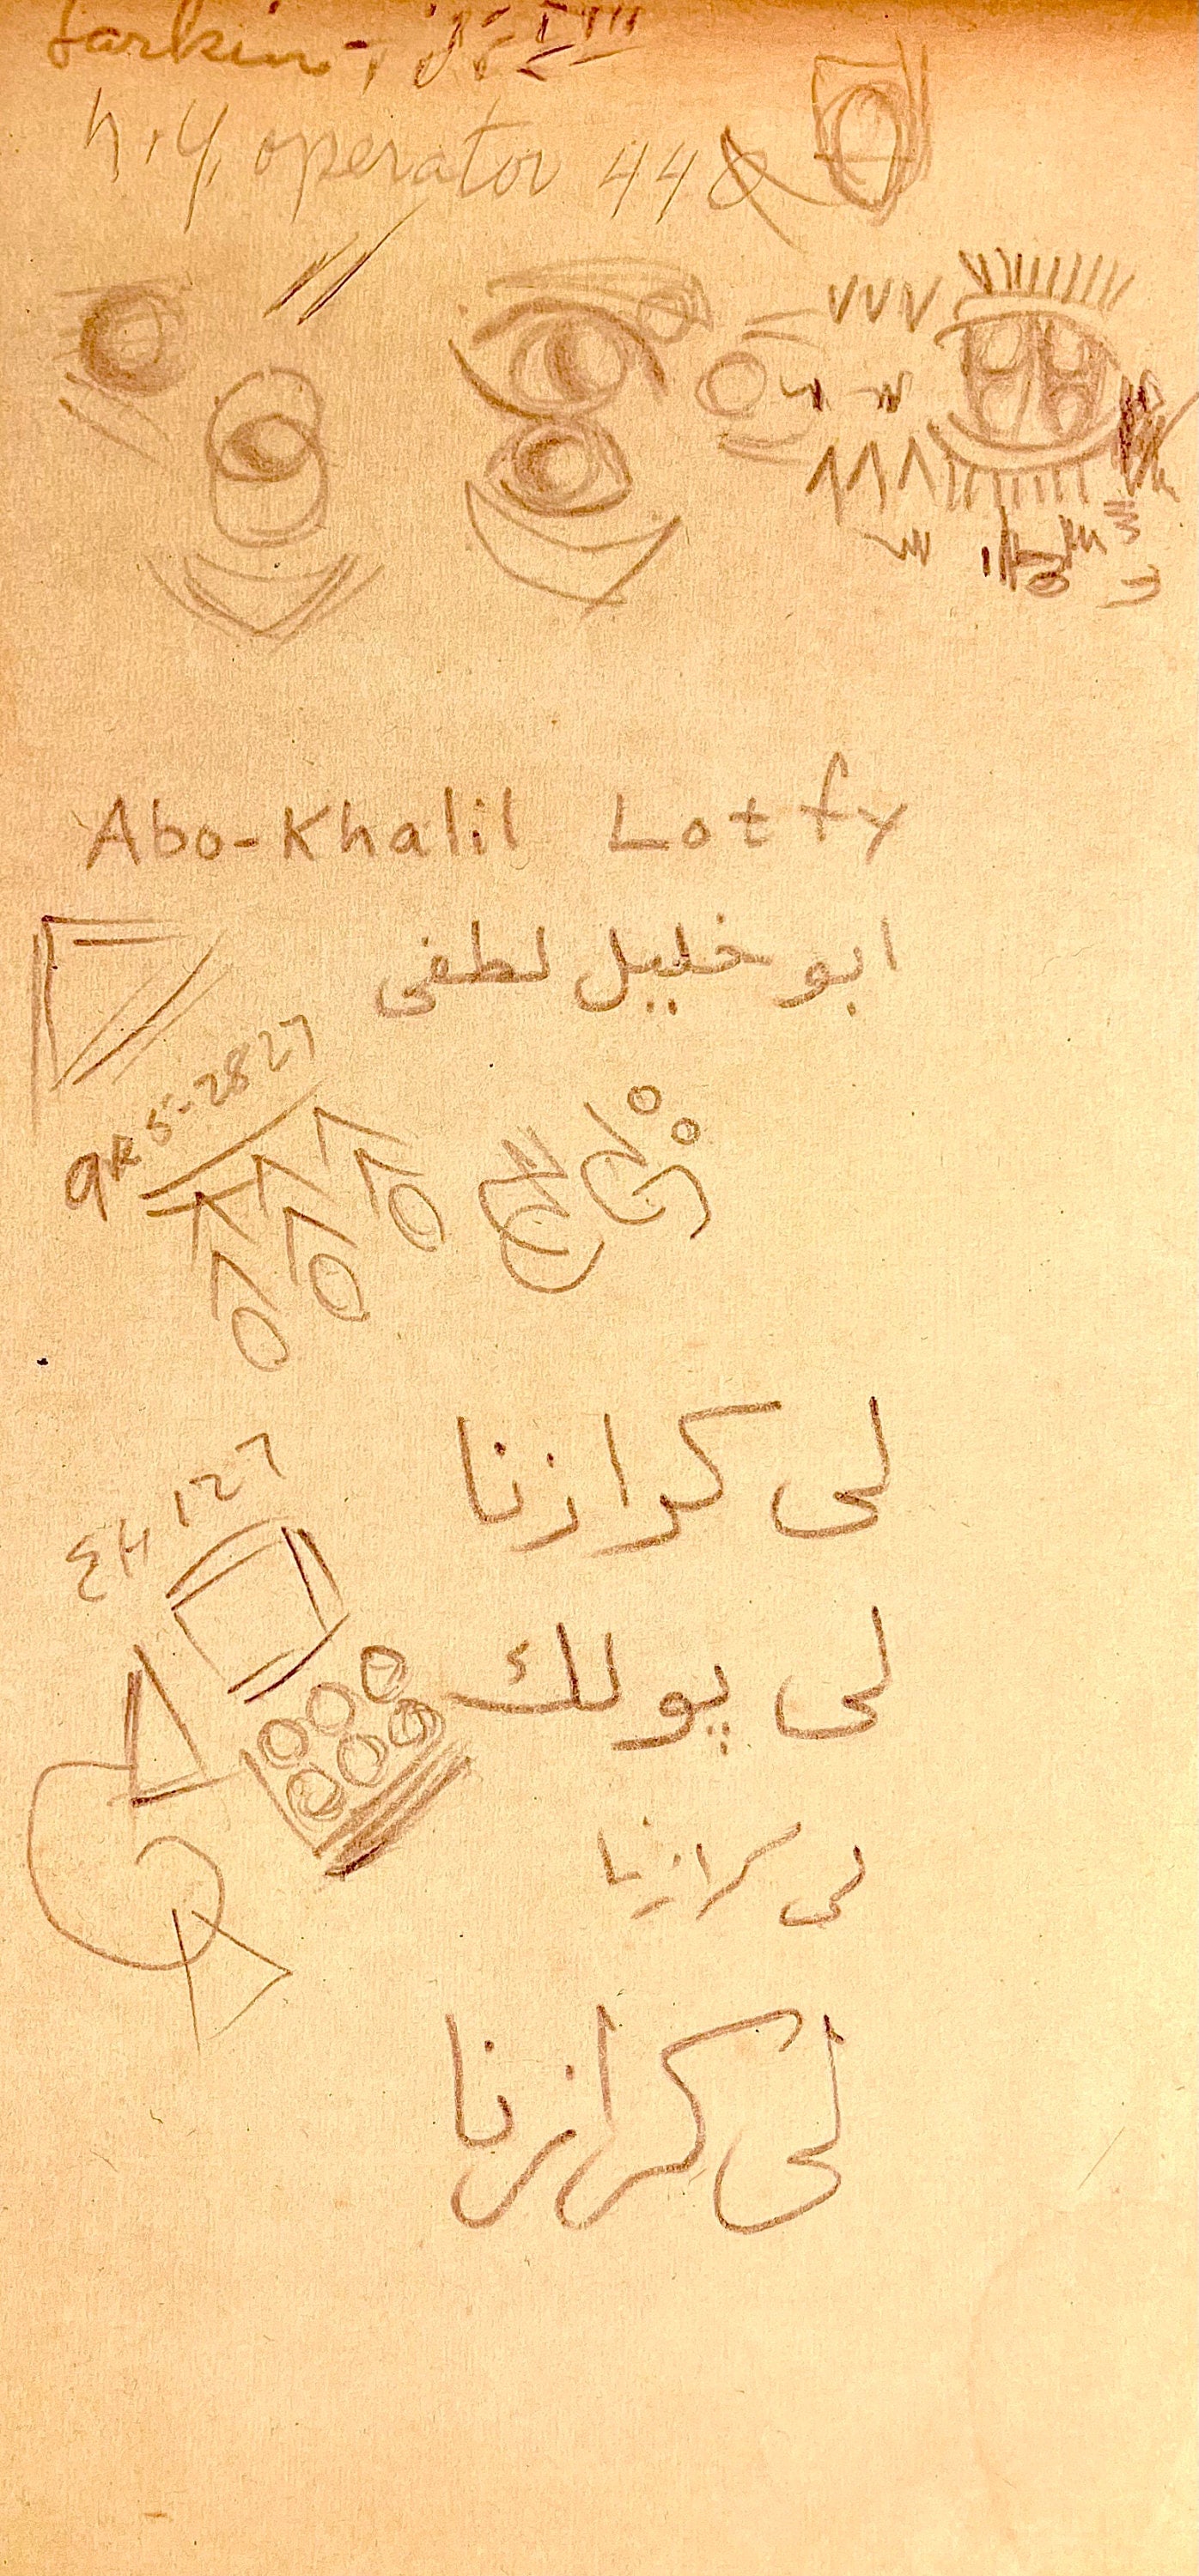 Larkin -
n.y. operator 44
Abo-Khalil Lotfy
ابو خليل لطفى
GR 5-2827
لى كرازنا
EH 127
لى پولك
لى كرازنا
لى كرازنا